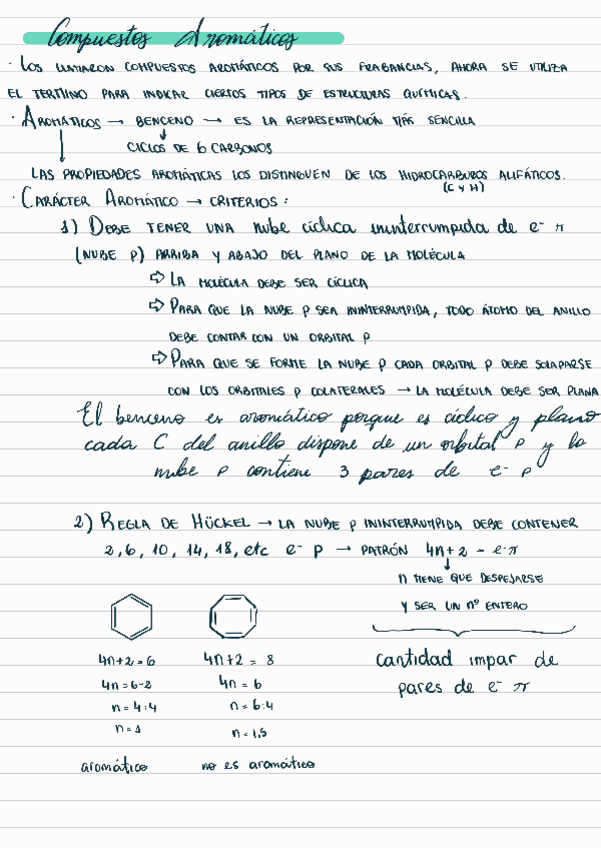 Compuestos Aromáticos
· Los llamaron compuestos aromáticos por sus fragancias, ahora se utiliza
el termino para indicar ciertos tipos de estructuras químicas.
· Aromáticos → benceno → es la representación más sencilla
ciclos de 6 carbonos
las propiedades aromáticas los distinguen de los hidrocarburos alifáticos.
(C y H)
· Carácter Aromático → criterios:
1) Debe tener una nube cíclica ininterrumpida de e⁻ π
(nube p) arriba y abajo del plano de la molécula
⇨ La molécula debe ser cíclica
⇨ Para que la nube p sea ininterrumpida, todo átomo del anillo
debe contar con un orbital p
⇨ Para que se forme la nube p cada orbital p debe solaparse
con los orbitales p colaterales → la molécula debe ser plana
El benceno es aromático porque es cíclico y plano
cada C del anillo dispone de un orbital p y la
nube p contiene 3 pares de e⁻ p
2) Regla de Hückel → la nube p ininterrumpida debe contener
2, 6, 10, 14, 18, etc e⁻ p → patrón 4n+2 - e⁻π
n tiene que despejarse
y ser un nº entero
cantidad impar de
pares de e⁻ π
4n+2=6
4n=6-2
n=4:4
n=1
aromático
4n+2 = 8
4n = 6
n = 6:4
n=1,5
no es aromático